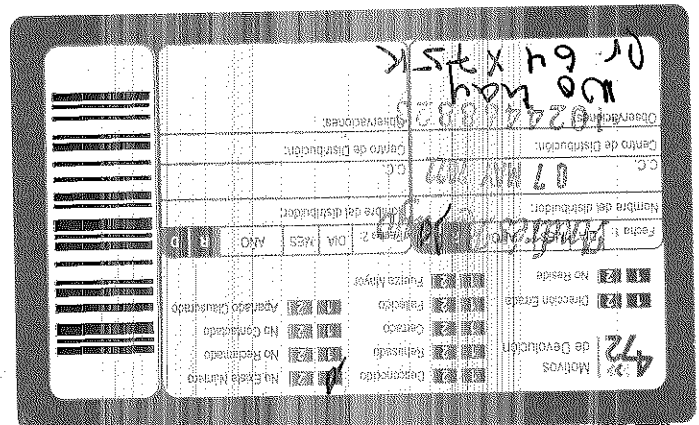 472
Motivos
de Devolución
Desconocido
Rehusado
Cerrado
Fallecido
Fuerza Mayor
No Existe Número
No Reclamado
No Contactado
Apartado Clausurado
Dirección Errada
No Reside
Fecha 1:
Fecha 2:
DIA
MES
AÑO
R
D
Nombre del distribuidor:
Nombre del distribuidor:
C.C.
07 MAY 2022
C.C.
Centro de Distribución:
Centro de Distribución:
Observaciones:
Observaciones:
No hay
Cr 64 x 75 K